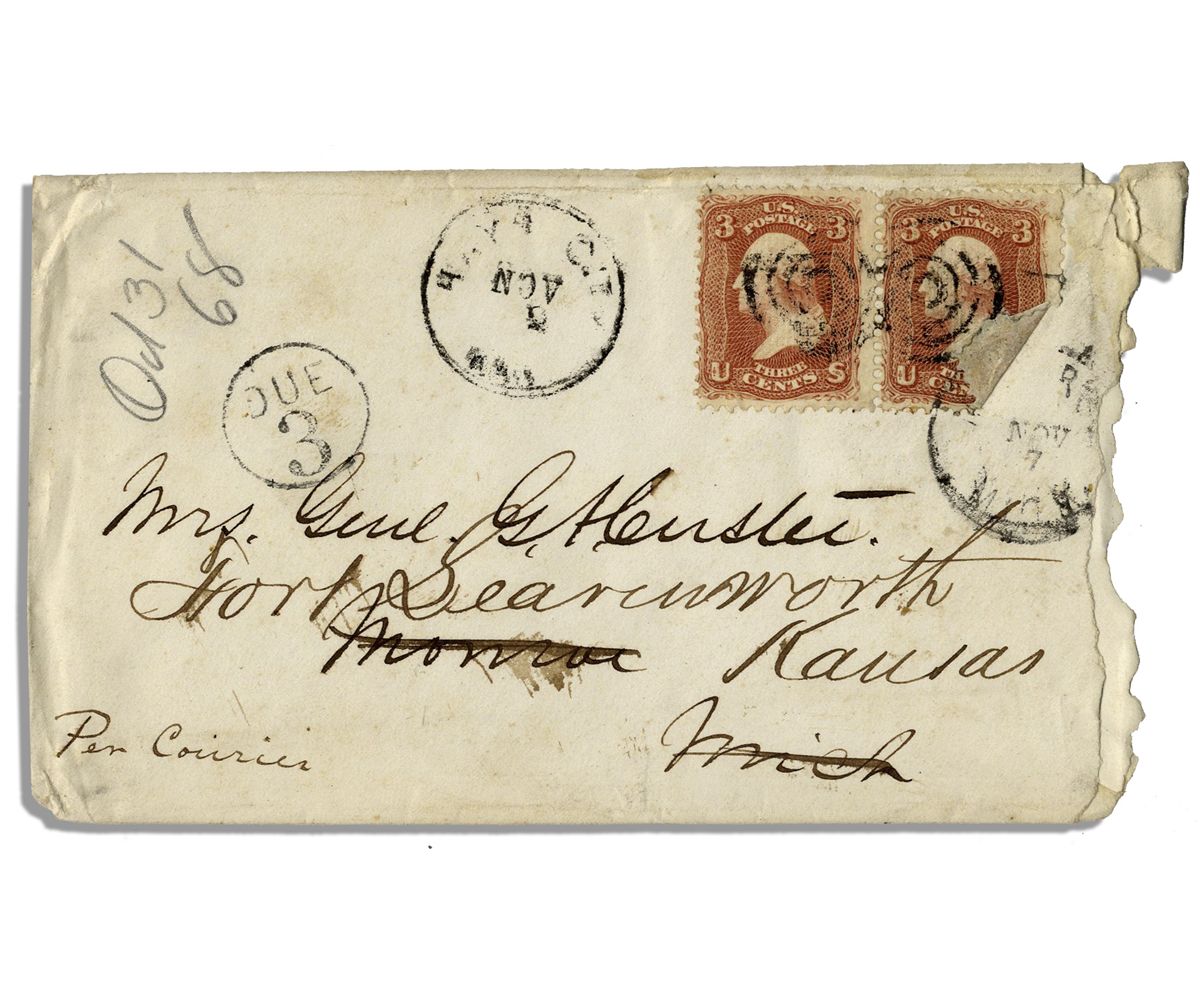 Oct 31
68
DUE
3
HAYS CITY
NOV
3
KAN
3 U.S. 3
POSTAGE
THREE
U CENTS S
3 U.S. 3
POSTAGE
U
NOV
7
Mrs. Genl. G. A. Custer.
Fort Leavenworth
Monroe Kansas
Per Courier
Mich